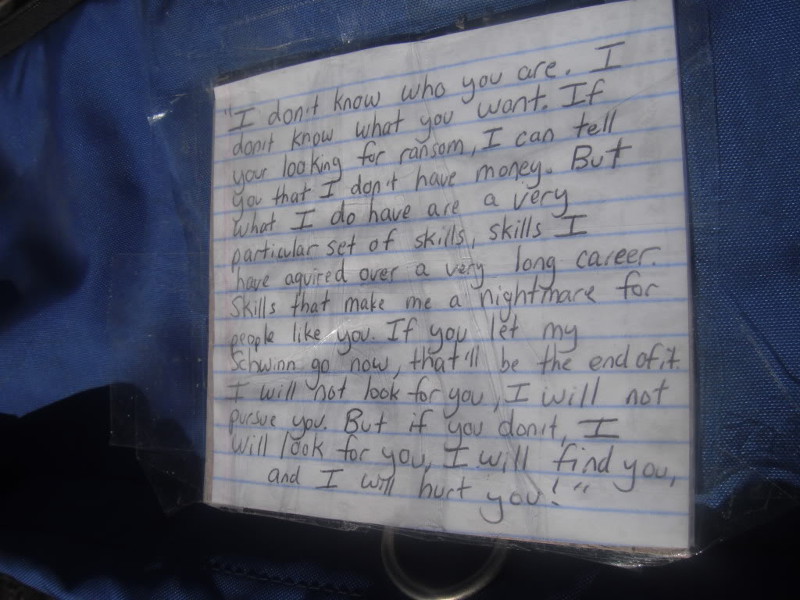 "I don't know who you are. I
don't know what you want. If
your looking for ransom, I can tell
you that I don't have money. But
what I do have are a very
particular set of skills, skills I
have aquired over a very long career.
Skills that make me a nightmare for
people like you. If you let my
Schwinn go now, that'll be the end of it.
I will not look for you, I will not
pursue you. But if you don't, I
will look for you, I will find you,
and I will hurt you!"